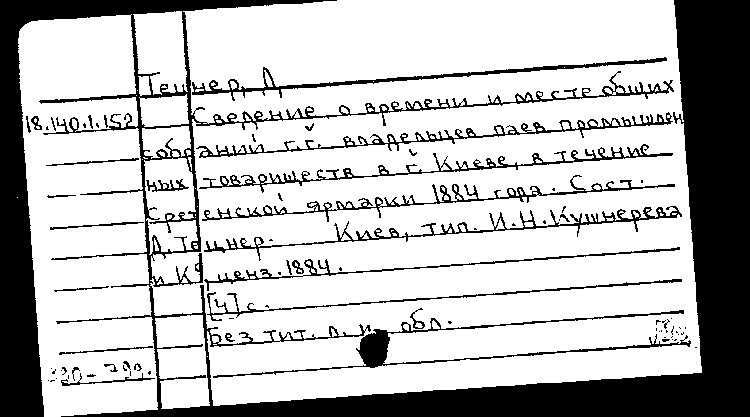 Тецнер, Д
18.140.1.152
Сведение о времени и месте общих
собраний г.г. владельцев паев промышлен
ных товариществ в г. Киеве, в течение
Сретенской ярмарки 1884 года. Сост.
Д. Тецнер. Киев, тип. И.Н.Кушнерева
и К⁰, ценз. 1884.
[4] с.
Без тит. л. и обл.